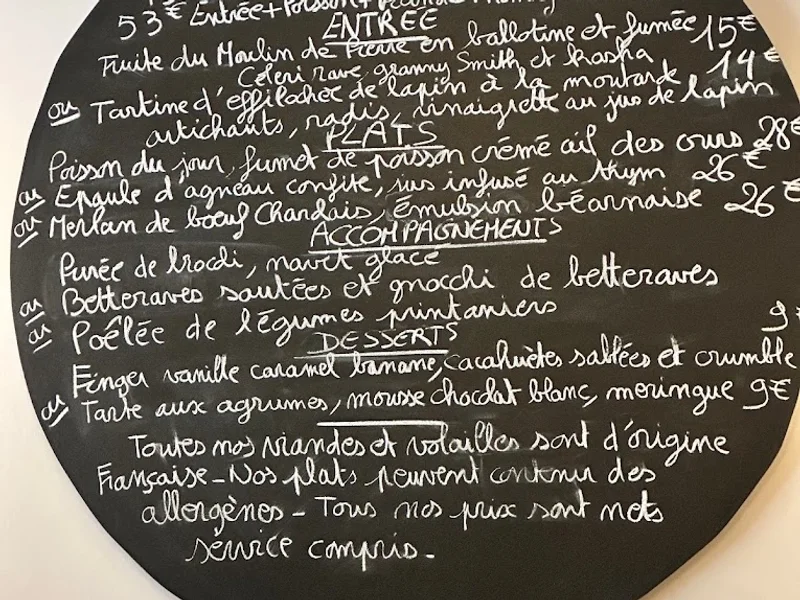 53€ Entrée + Poisson +
ENTRÉE
Truite du Moulin de Pierre en ballotine et fumée 15€
Céleri rave, granny Smith et kasha
ou Tartine d'effilochée de lapin à la moutarde 14€
artichauts, radis, vinaigrette au jus de lapin
PLATS
Poisson du jour, fumet de poisson crémé ail des ours 28€
ou Epaule d'agneau confite, jus infusé au thym 26€
ou Merlan de bœuf Charolais, émulsion béarnaise 26€
ACCOMPAGNEMENTS
Purée de brocoli, navet glacé
ou Betteraves sautées et gnocchi de betteraves
ou Poêlée de légumes printaniers
DESSERTS 9
Finger vanille caramel banane, cacahuètes sablées et crumble
ou Tarte aux agrumes, mousse chocolat blanc, meringue 9€
Toutes nos viandes et volailles sont d'origine
Française - Nos plats peuvent contenir des
allergènes - Tous nos prix sont nets
service compris -